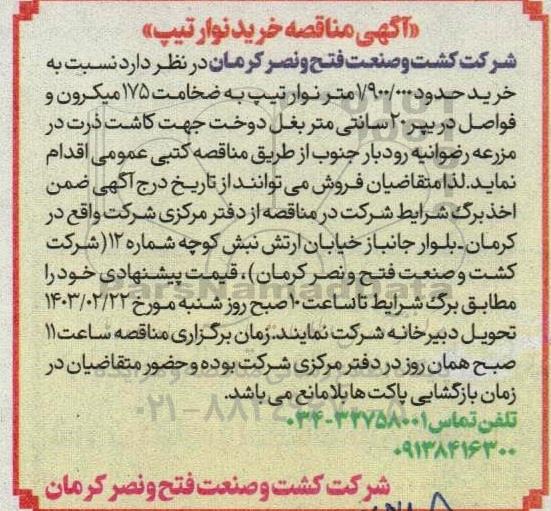 «آگهی مناقصه خرید نوار تیپ»
شرکت کشت وصنعت فتح ونصر کرمان در نظر دارد نسبت به
خرید حدود ۱/۹۰۰/۰۰۰ متر نوار تیپ به ضخامت ۱۷۵ میکرون و
فواصل دریپر ۲۰ سانتی متر بغل دوخت جهت کاشت ذرت در
مزرعه رضوانیه رودبار جنوب از طریق مناقصه کتبی عمومی اقدام
نماید. لذا متقاضیان فروش می توانند از تاریخ درج آگهی ضمن
اخذ برگ شرایط شرکت در مناقصه از دفتر مرکزی شرکت واقع در
کرمان ـ بلوار جانباز خیابان ارتش نبش کوچه شماره ۱۲ (شرکت
کشت و صنعت فتح و نصر کرمان)، قیمت پیشنهادی خود را
مطابق برگ شرایط تا ساعت ۱۰ صبح روز شنبه مورخ ۱۴۰۳/۰۲/۲۲
تحویل دبیرخانه شرکت نمایند. زمان برگزاری مناقصه ساعت ۱۱
صبح همان روز در دفتر مرکزی شرکت بوده و حضور متقاضیان در
زمان بازگشایی پاکت ها بلامانع می باشد.
تلفن تماس ۳۲۷۵۸۰۰۱-۰۳۴
۰۹۱۳۸۴۱۶۳۰۰
شرکت کشت و صنعت فتح و نصر کرمان
ParsNamadData